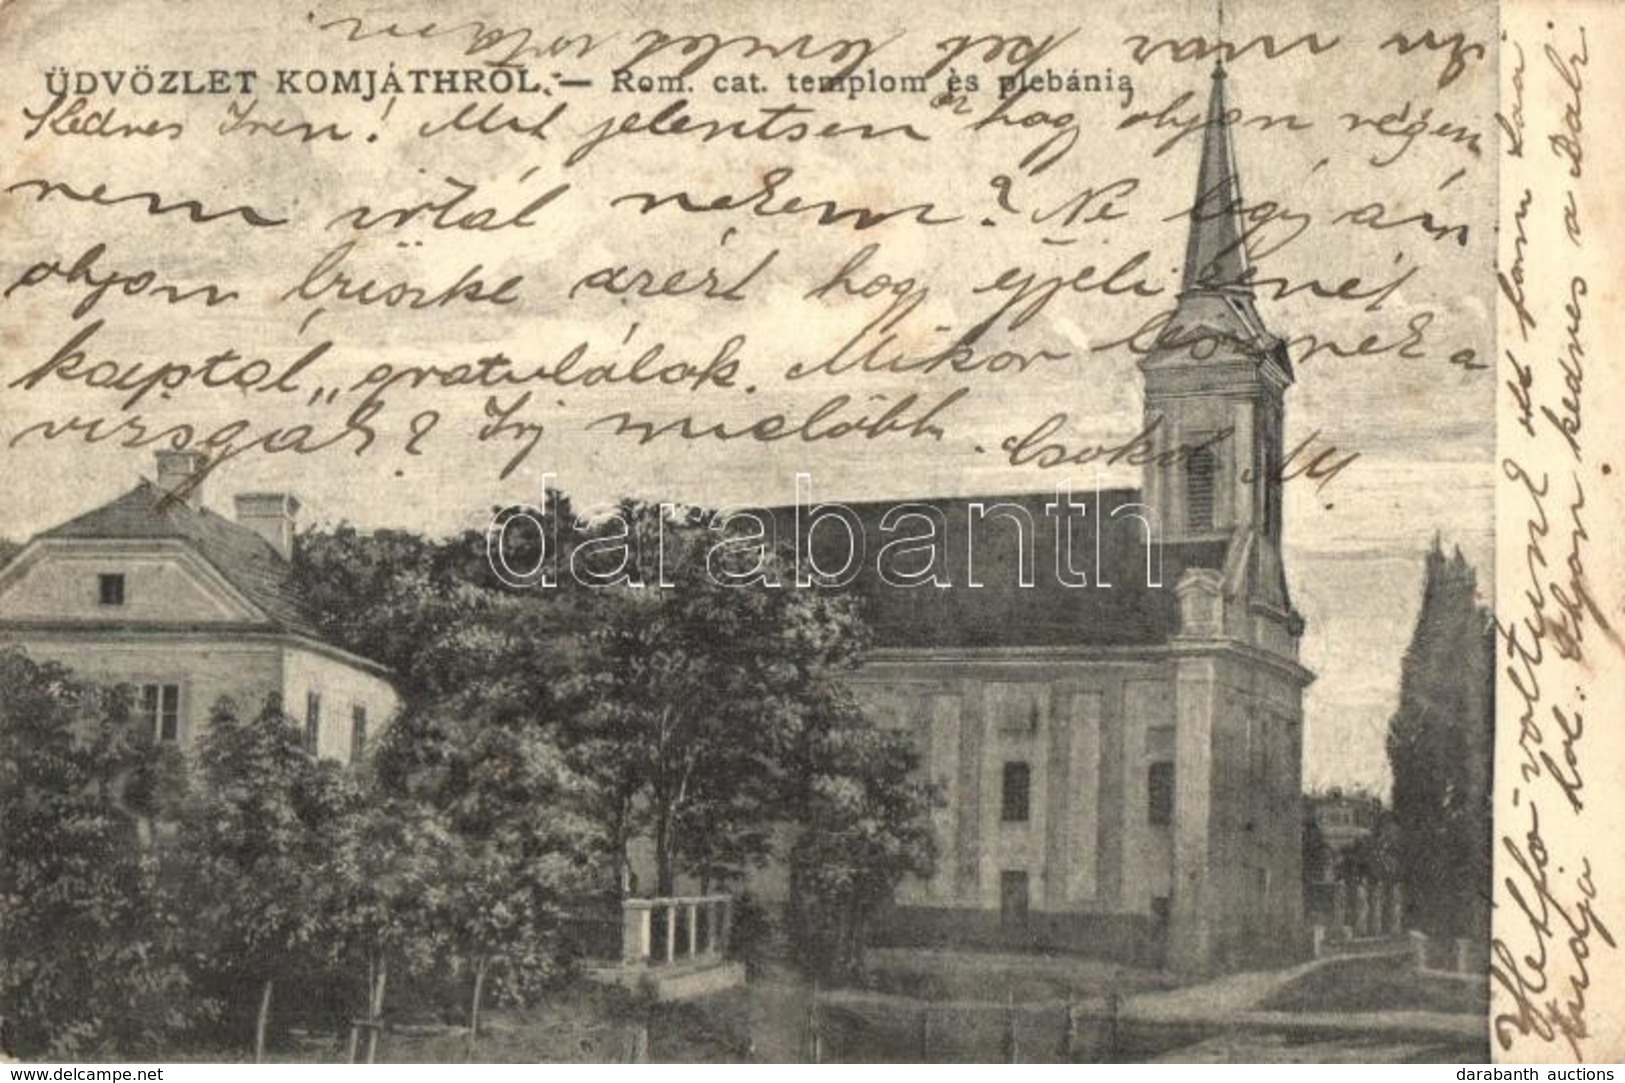 ÜDVÖZLET KOMJÁTHRÓL. — Rom. cat. templom és plebánia
Kedves Iren! Mit jelentsen az hog olyon régen
nem irtál nekem? Ne légy ám
olyon büszke azért hog éjjeli zenét
kaptál „gratulálok. Mikor lesznek a
vizsgák? Irj mielőbb. Csokol M
Én mar két levelet irtam
Hetfő voltunk itt fenn
tudja hol. Olyon kedves a
darabanth
www.delcampe.net
darabanth auctions